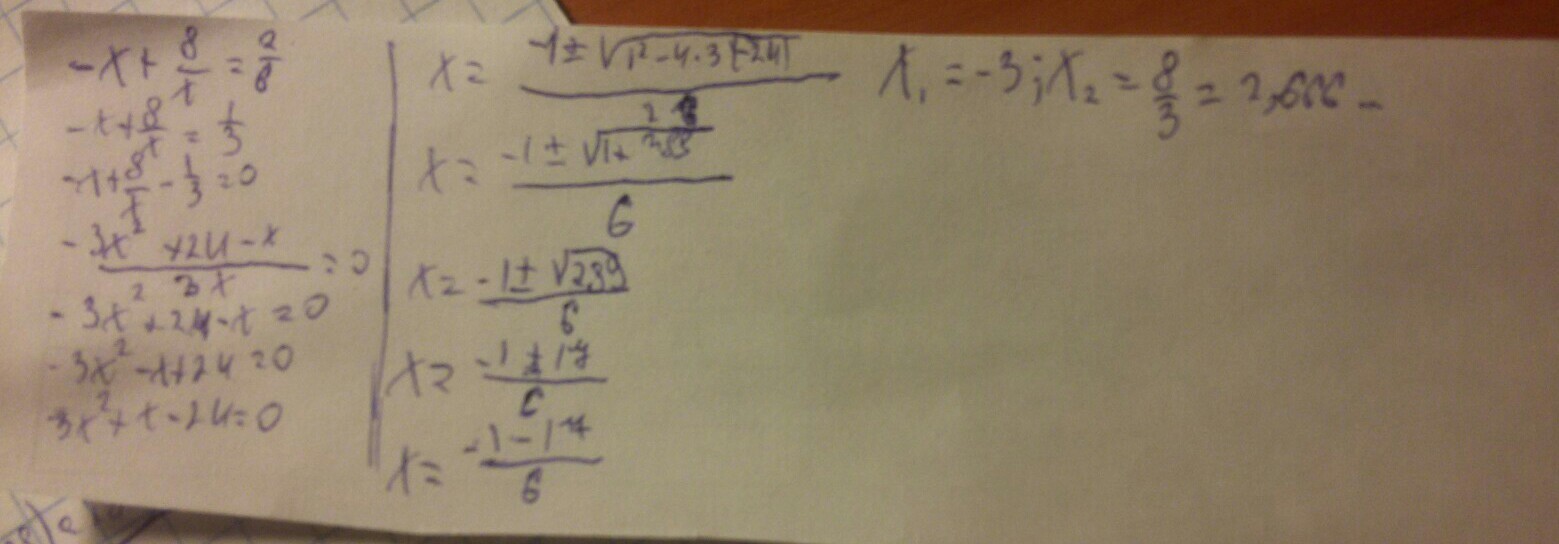 -x + 8/x = 2/6
-x + 8/x = 1/3
-x + 8/x - 1/3 = 0
(-3x² + 24 - x)/(3x) = 0
-3x² + 24 - x = 0
-3x² - x + 24 = 0
3x² + x - 24 = 0
x = (-1 ± √(1² - 4·3(-24)))/(2·3)
x = (-1 ± √(1 + 288))/6
x = (-1 ± √289)/6
x = (-1 ± 17)/6
x = (-1 - 17)/6
x₁ = -3; x₂ = 8/3 = 2,666 -